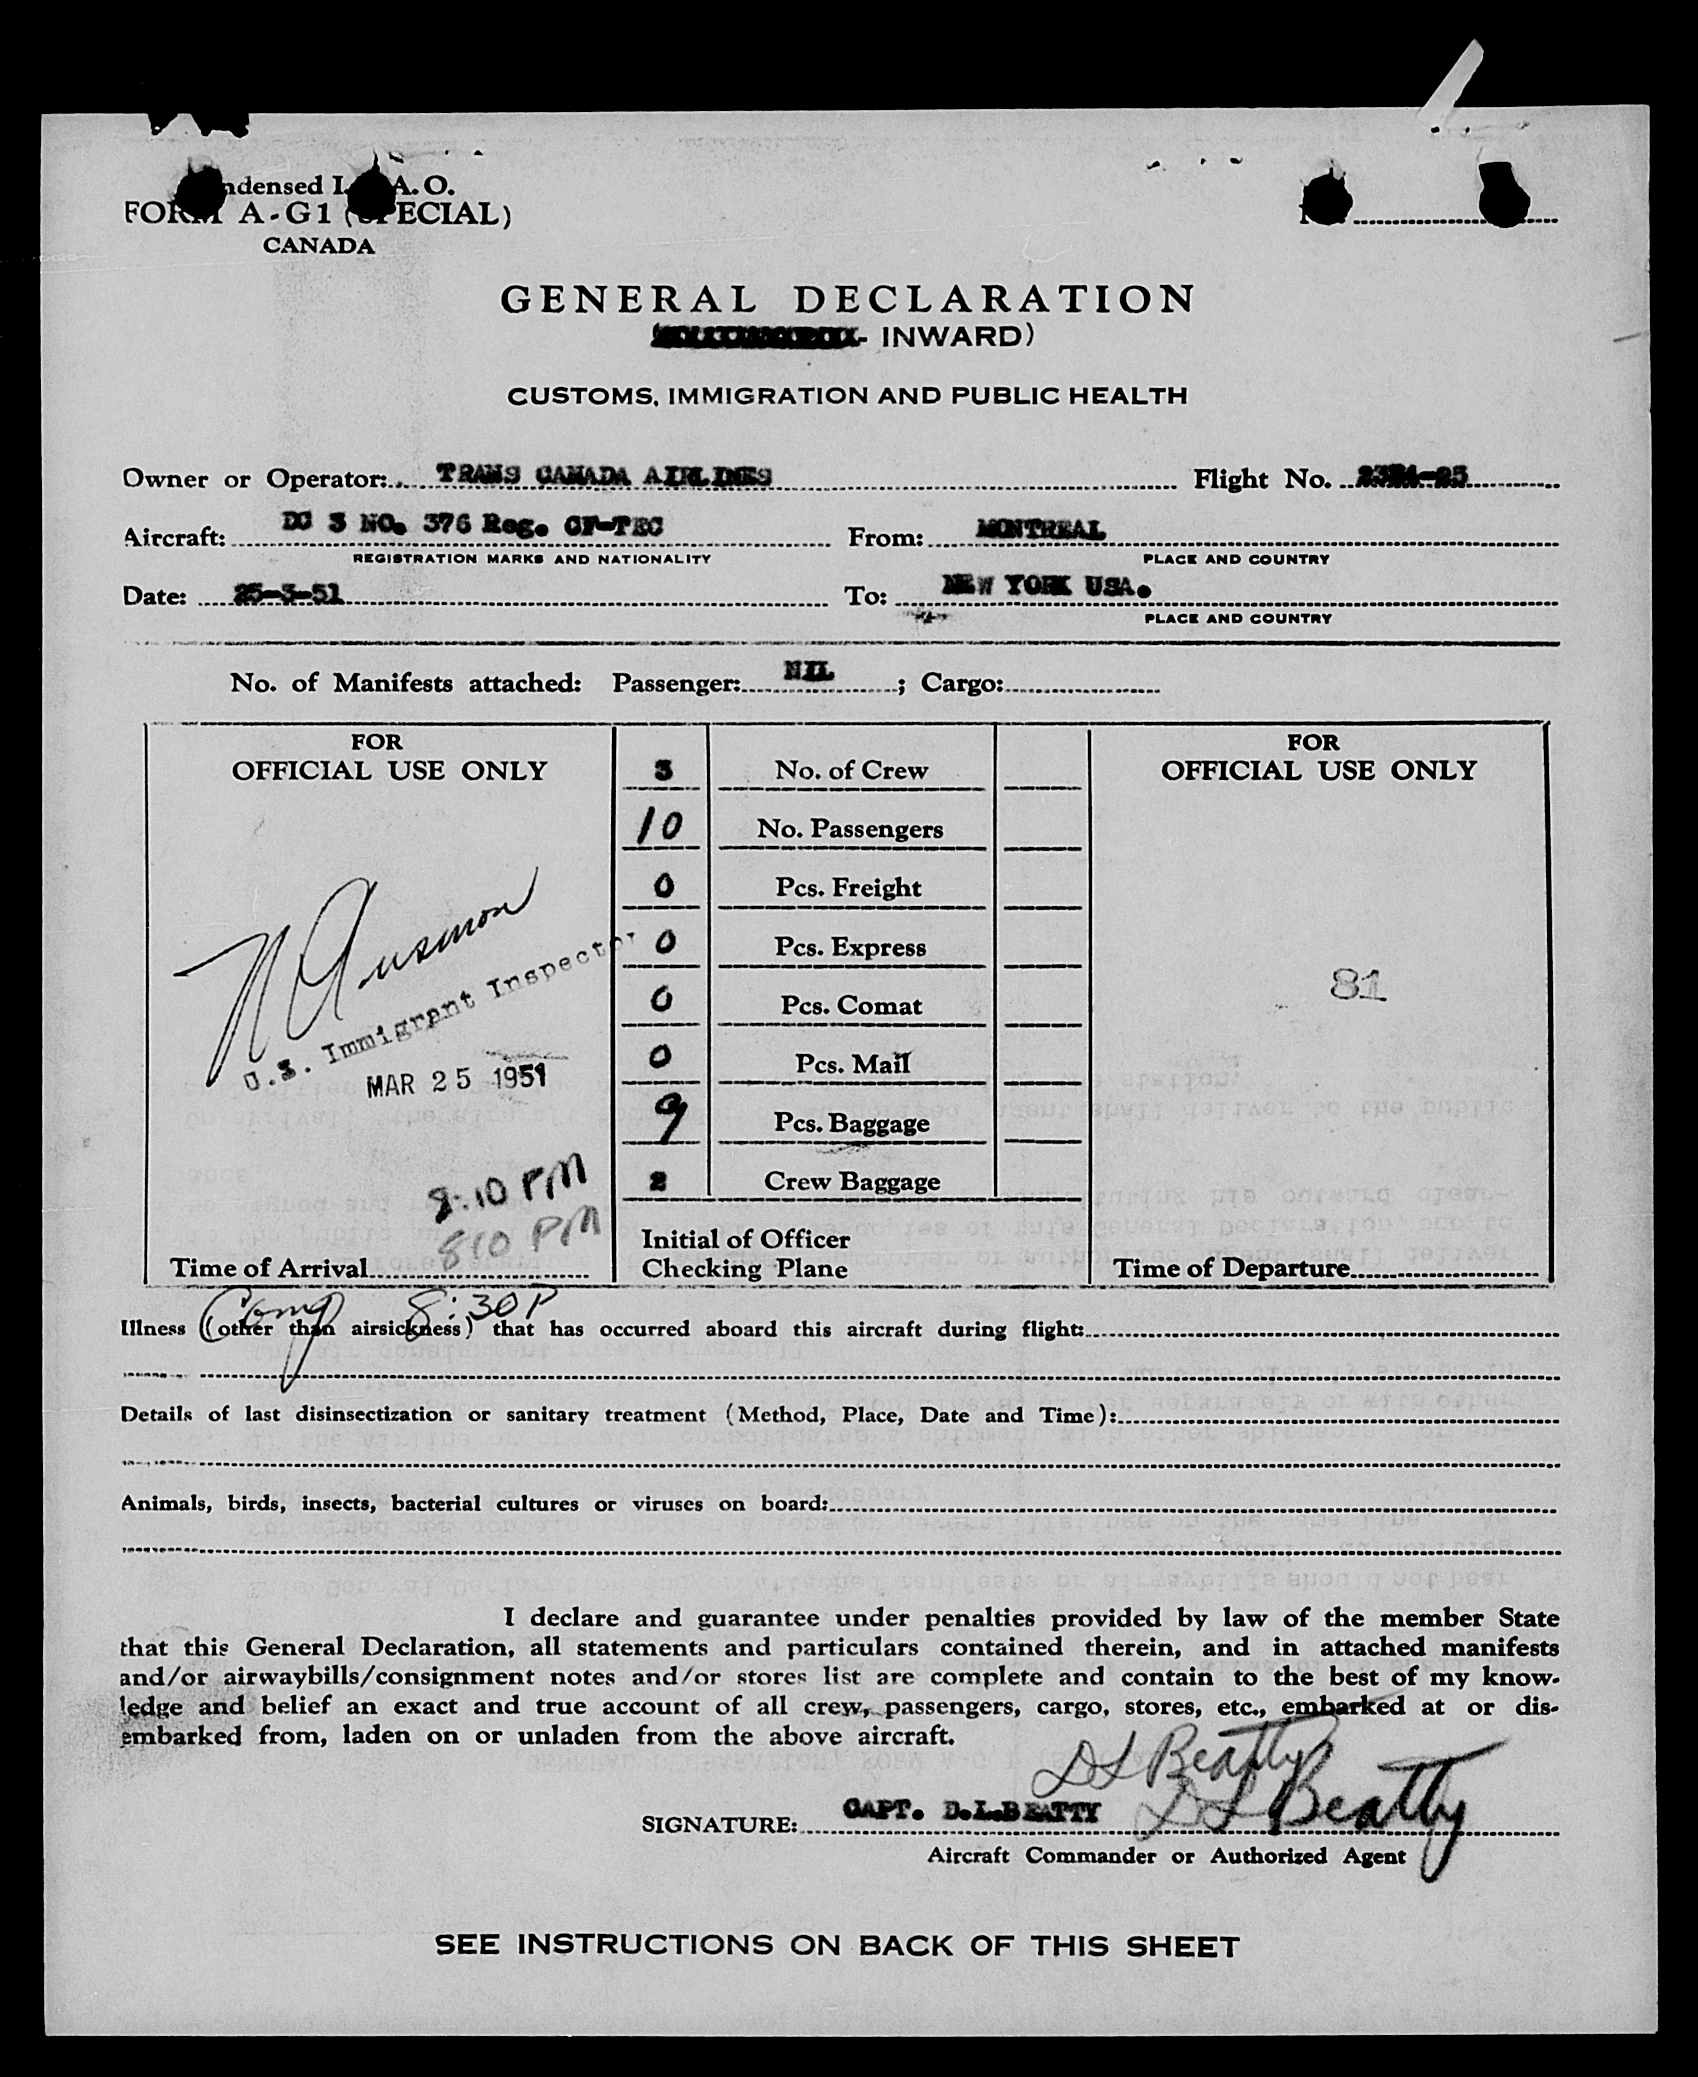 FORM A-G1 (SPECIAL)
CANADA
GENERAL DECLARATION
- INWARD)
CUSTOMS, IMMIGRATION AND PUBLIC HEALTH
Owner or Operator: TRANS CANADA AIRLINES Flight No.
Aircraft: DC 3 NO. 376 Reg. CF-TEC From: MONTREAL
REGISTRATION MARKS AND NATIONALITY PLACE AND COUNTRY
Date: 25-3-51 To: NEW YORK USA.
PLACE AND COUNTRY
No. of Manifests attached: Passenger: NIL ; Cargo:
FOR
OFFICIAL USE ONLY
3 No. of Crew
10 No. Passengers
0 Pcs. Freight
0 Pcs. Express
0 Pcs. Comat
0 Pcs. Mail
9 Pcs. Baggage
2 Crew Baggage
Initial of Officer
Checking Plane
U.S. Immigrant Inspector
MAR 25 1951
8:10 PM
810 PM
Time of Arrival
FOR
OFFICIAL USE ONLY
81
Time of Departure
Comp 8:30P
Illness (other than airsickness) that has occurred aboard this aircraft during flight:
Details of last disinsectization or sanitary treatment (Method, Place, Date and Time):
Animals, birds, insects, bacterial cultures or viruses on board:
I declare and guarantee under penalties provided by law of the member State
that this General Declaration, all statements and particulars contained therein, and in attached manifests
and/or airwaybills/consignment notes and/or stores list are complete and contain to the best of my know-
ledge and belief an exact and true account of all crew, passengers, cargo, stores, etc., embarked at or dis-
embarked from, laden on or unladen from the above aircraft.
DL Beatty
SIGNATURE: CAPT. D.L.BEATTY DL Beatty
Aircraft Commander or Authorized Agent
SEE INSTRUCTIONS ON BACK OF THIS SHEET